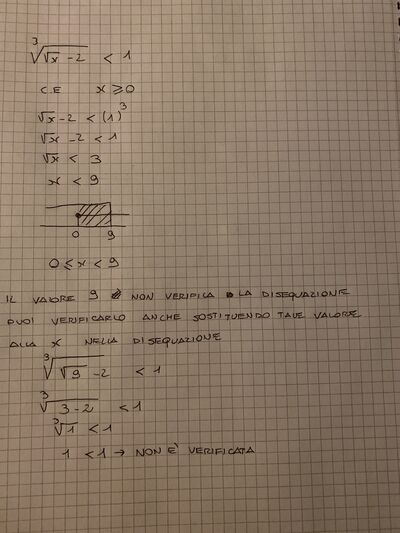 ∛(√x - 2) < 1
C.E. x ⩾ 0
√x - 2 < (1)³
√x - 2 < 1
√x < 3
x < 9
0 9
0 ⩽ x < 9
IL VALORE 9 NON VERIFICA LA DISEQUAZIONE
PUOI VERIFICARLO ANCHE SOSTITUENDO TALE VALORE
ALLA X NELLA DISEQUAZIONE
∛(√9 - 2) < 1
∛(3 - 2) < 1
∛1 < 1
1 < 1 → NON È VERIFICATA